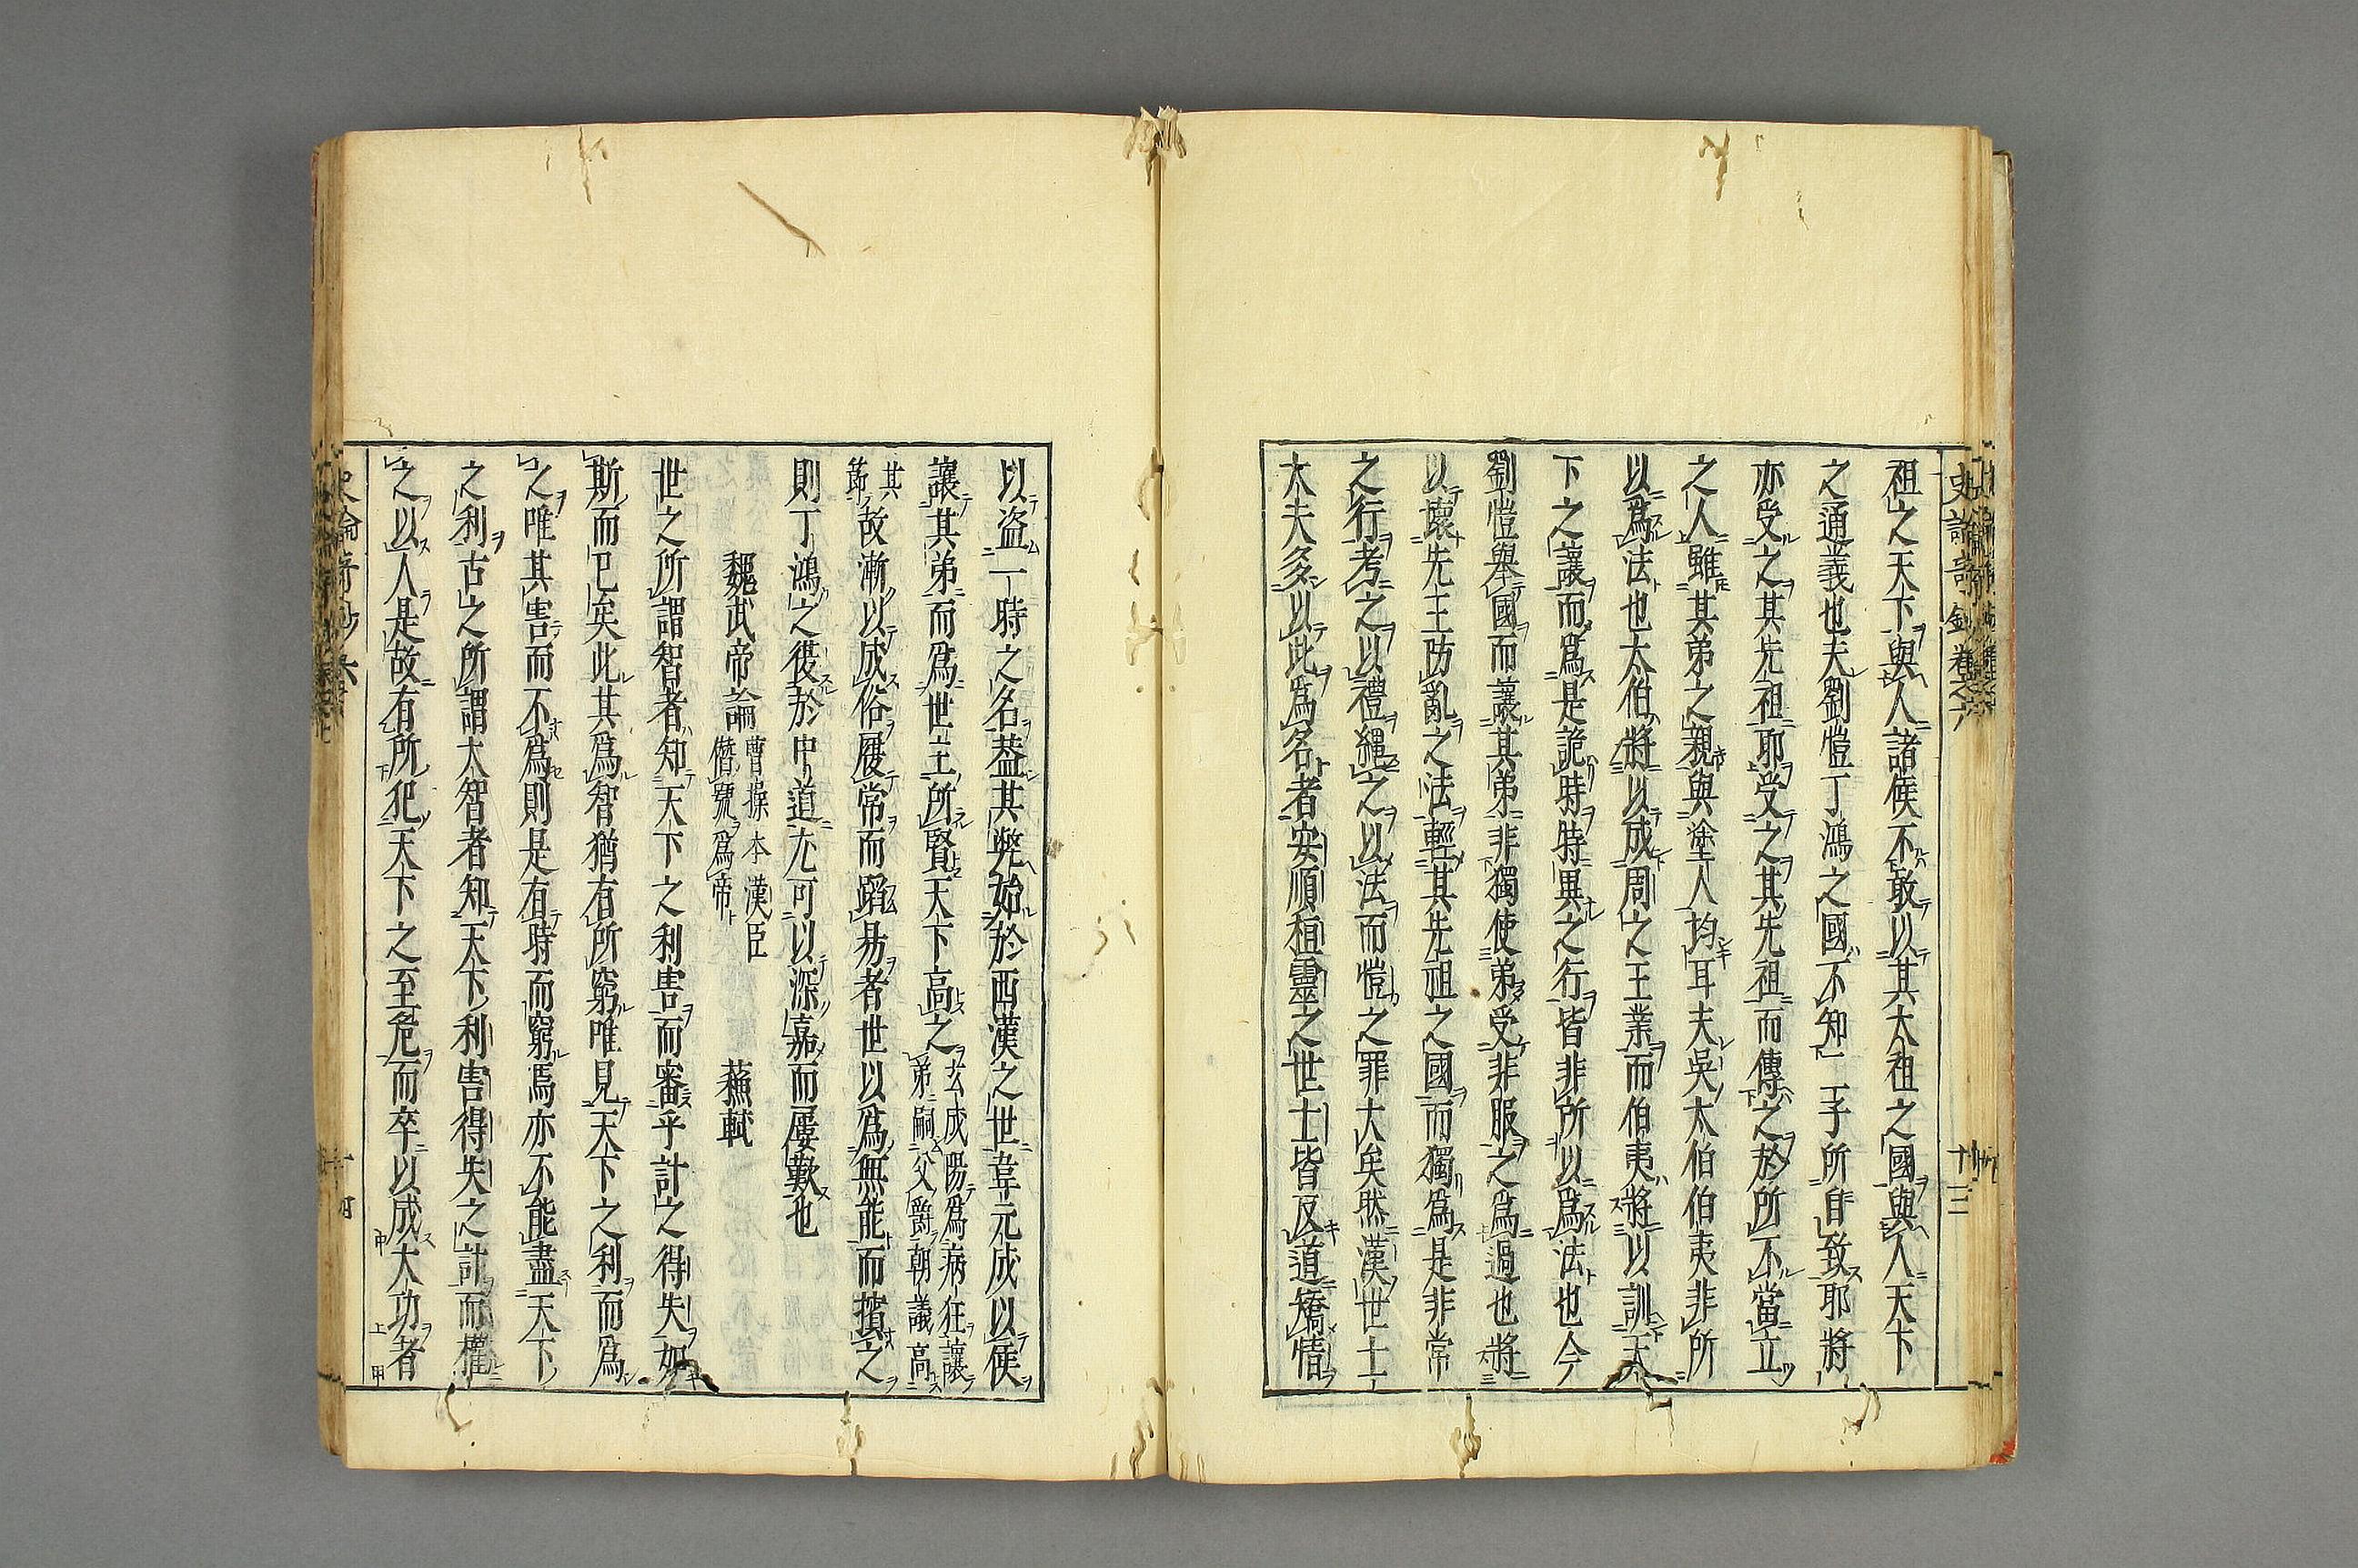 史論奇鈔卷之六
十三
祖之天下與人諸侯不敢以其太祖之國與人天下
之通義也夫劉愷丁鴻之國不知二子所自致耶將
亦受之其先祖耶受之其先祖而傳之於所不當立
之人雖其弟之親與塗人均耳夫吳太伯伯夷非所
以爲法也太伯將以成周之王業而伯夷將以訓天
下之讓而爲是詭時特異之行皆非所以爲法也今
劉愷舉國而讓其弟非獨使弟受非服之爲過也將
以壞先王防亂之法輕其先祖之國而獨爲是非常
之行考之以禮繩之以法而愷之罪大矣然漢世士
大夫多以此爲名者安順桓靈之世士皆反道矯情
以盜一時之名葢其弊始於西漢之世韋元成以侯
讓其弟而爲世主所賢天下高之玄成陽爲病狂讓弟嗣父爵朝議高
其節故漸以成俗履常而蹈易者世以爲無能而擯之
則丁鴻之復於中道尤可以深嘉而屢歎也
魏武帝論 曹操本漢臣僭號爲帝 蘇軾
世之所謂智者知天下之利害而審乎計之得失如
斯而已矣此其爲智猶有所窮唯見天下之利而爲
之唯其害而不爲則是有時而窮焉亦不能盡天下
之利古之所謂大智者知天下利害得失之計而權
之以人是故有所犯天下之至危而卒以成大功者